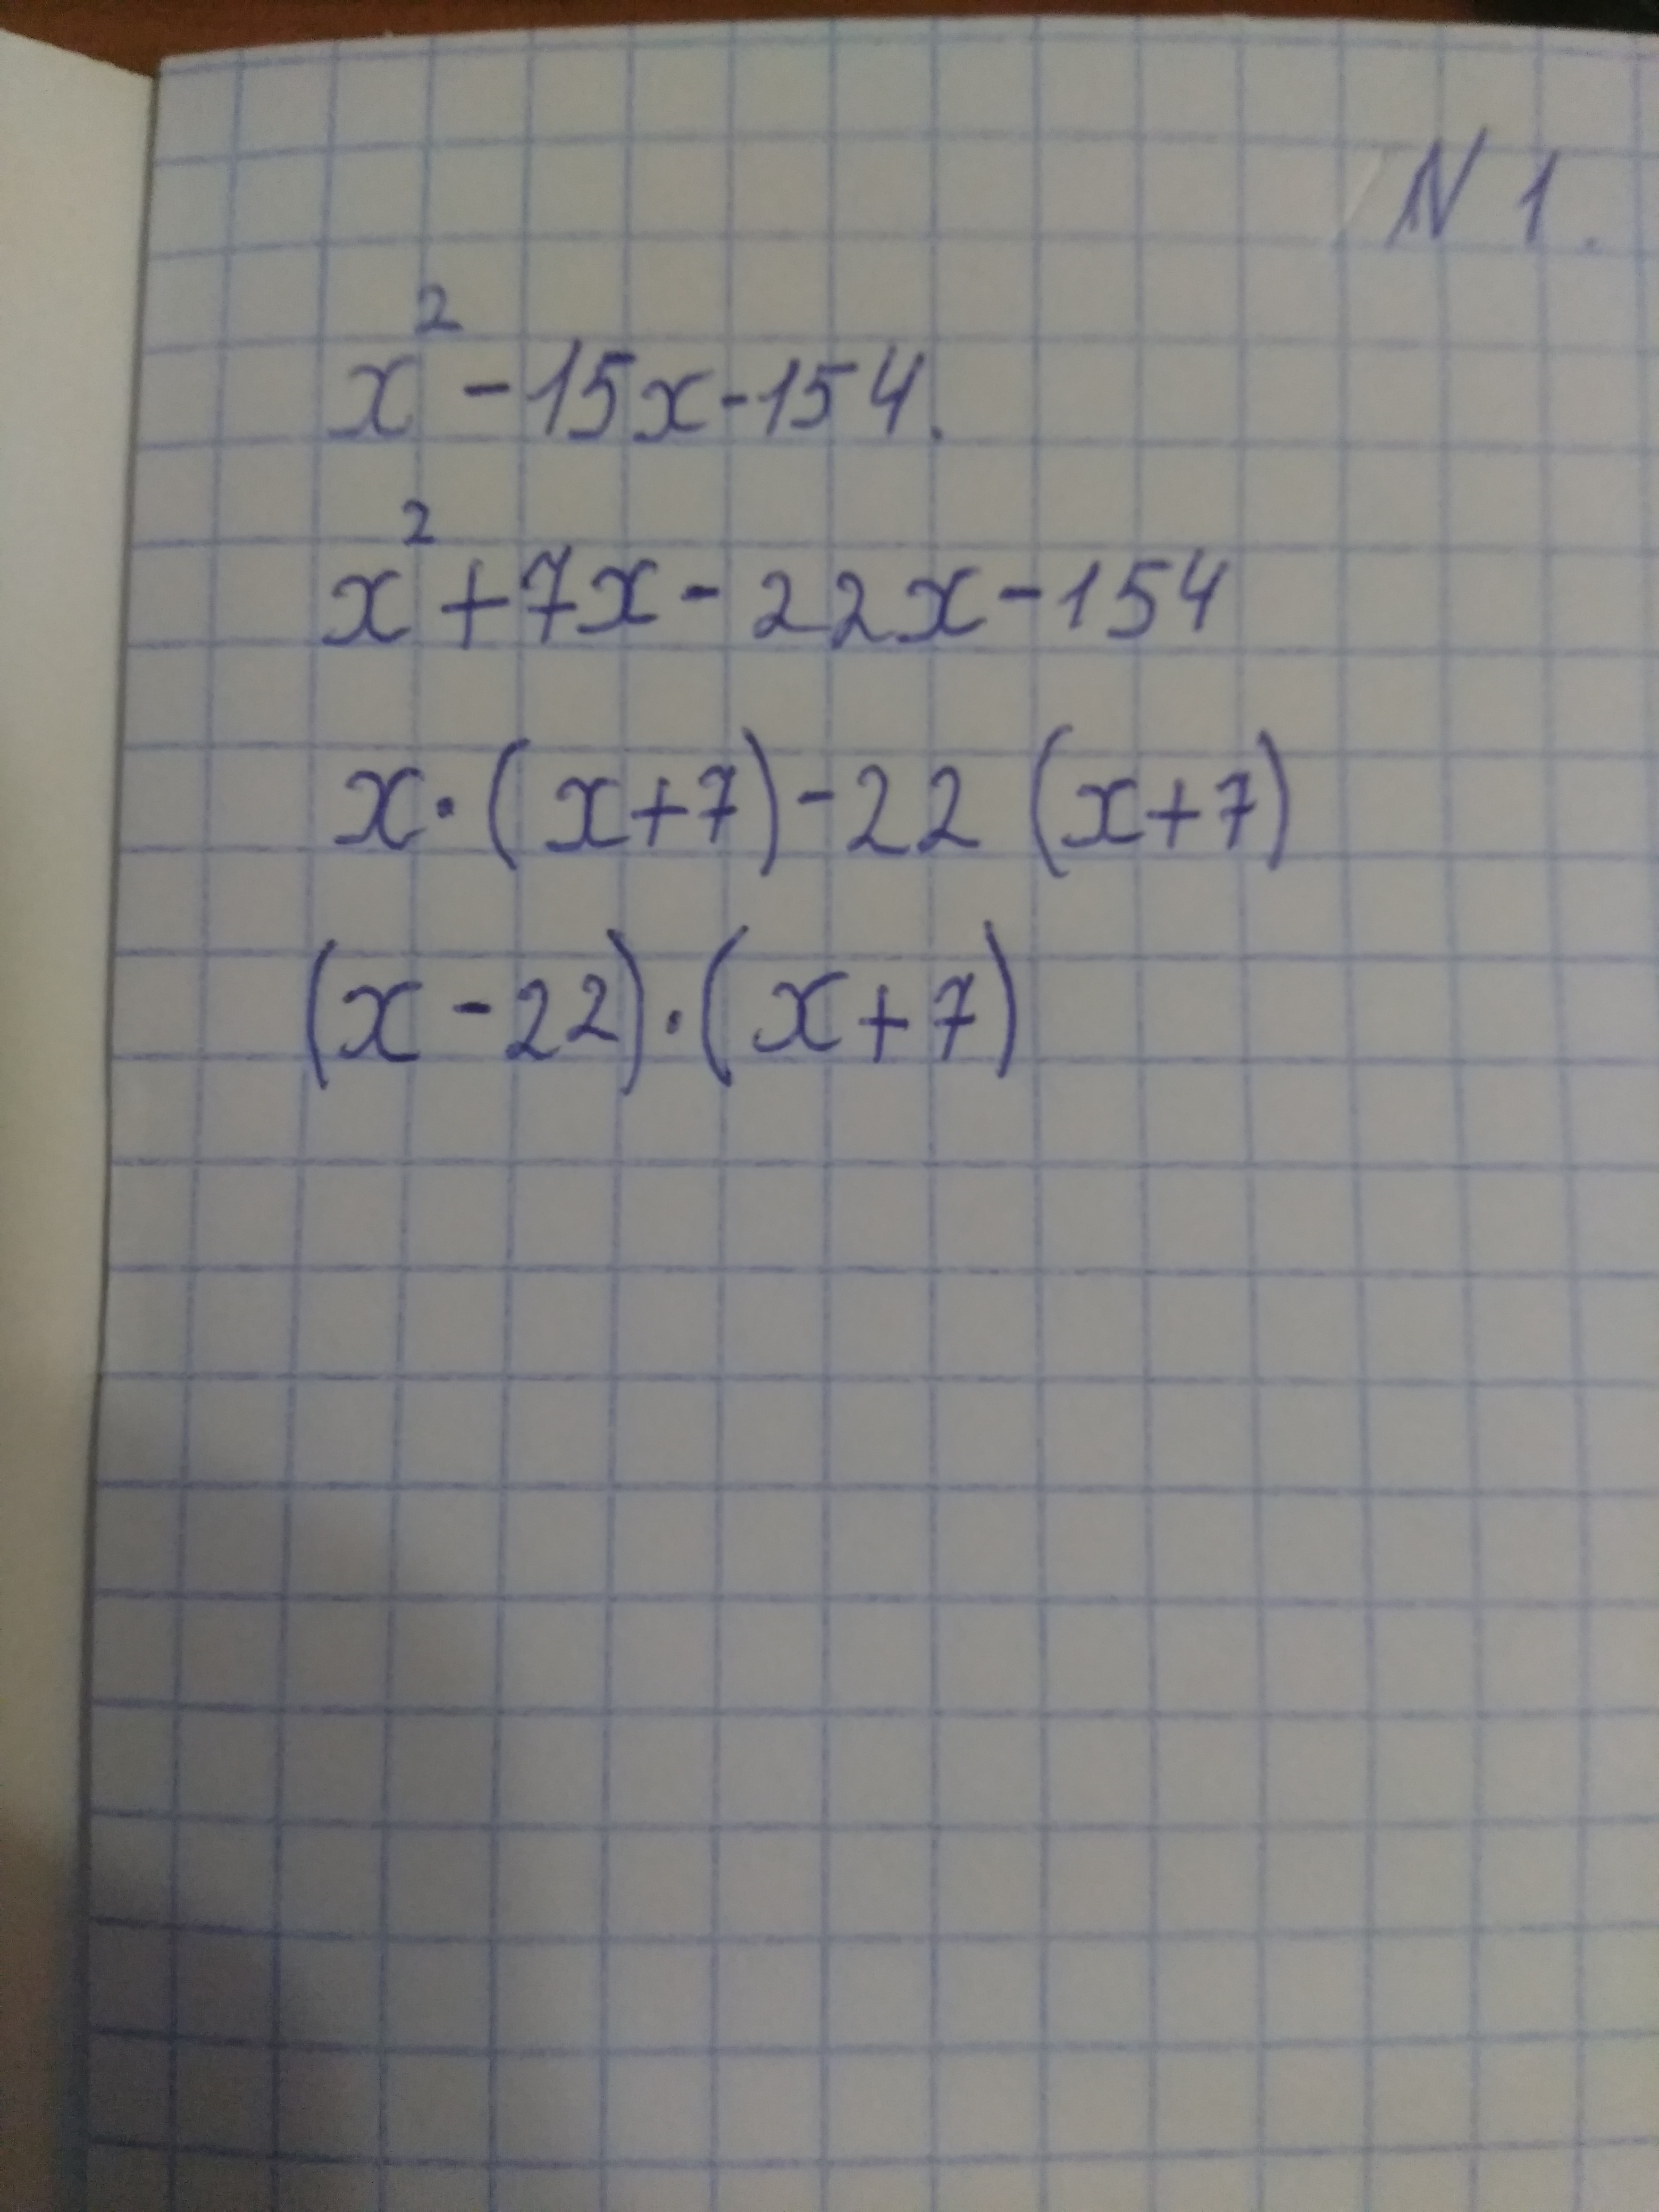 N 1.
x² - 15x - 154.
x² + 7x - 22x - 154
x · (x + 7) - 22 (x + 7)
(x - 22) · (x + 7)